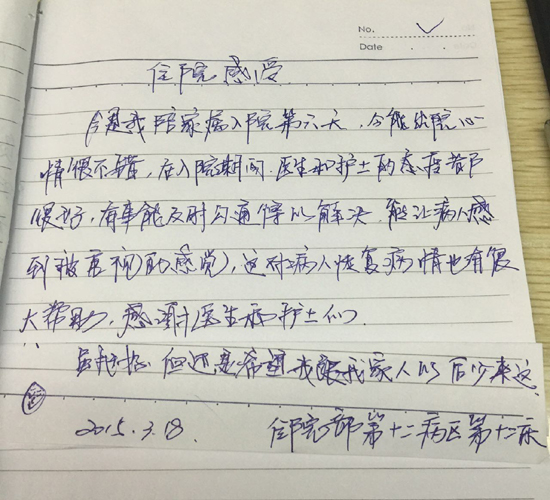 No.
Date
住院感受
今是我陪家病入院第六天,今能出院心
情很不错,在入院期间,医生和护士的态度都
很好,有事能及时沟通得以解决,能让病人感
到被重视的感觉,这对病人恢复病情也有很
大帮助,感谢医生和护士们。
但还是希望我跟我家人以后少来这
2015.3.18. 住院部第十二病区第十二床